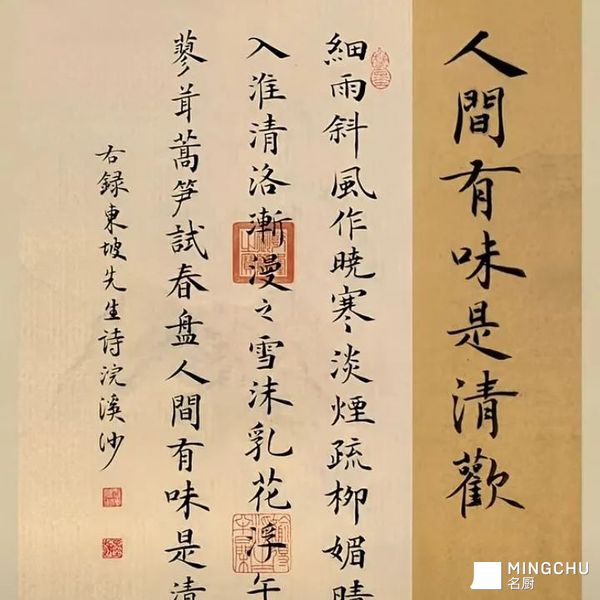 人間有味是清歡
細雨斜風作曉寒淡煙疏柳媚晴
入淮清洛漸漫之雪沫乳花浮午
蓼茸蒿笋試春盤人間有味是清
右録東坡先生詩浣溪沙
MINGCHU
名厨